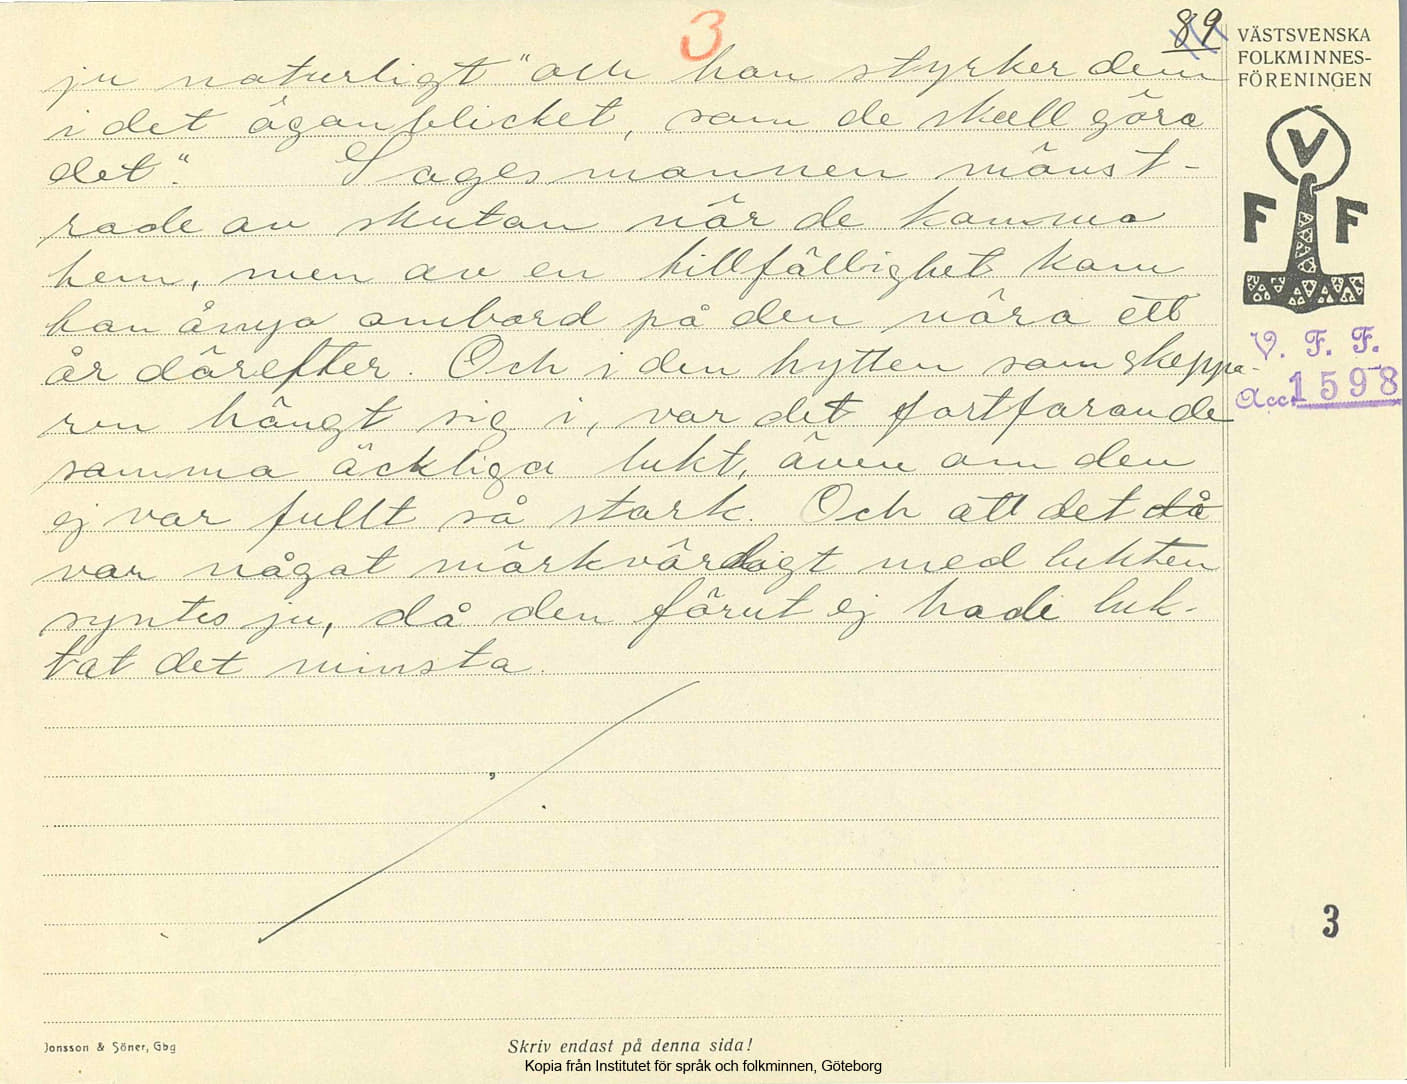 3
89
VÄSTSVENSKA
FOLKMINNES-
FÖRENINGEN
ju naturligt "och han styrker dem
i det ögonblicket, som de skall göra
det". Sagesmannen mönst-
rade av skutan när de komma
hem, men av en tillfällighet kom
han ånyo ombord på den nära ett
år därefter. Och i den hytten som skeppa-
ren hängt sig i, var det fortfarande
samma äckliga lukt, även om den
ej var fullt så stark. Och att det då
var något märkvärdigt med lukten
syntes ju, då den förut ej hade luk-
tat det minsta.
V
F F
V. F. F.
Acc. 1598
3
Jonsson & Söner, Gbg
Skriv endast på denna sida!
Kopia från Institutet för språk och folkminnen, Göteborg